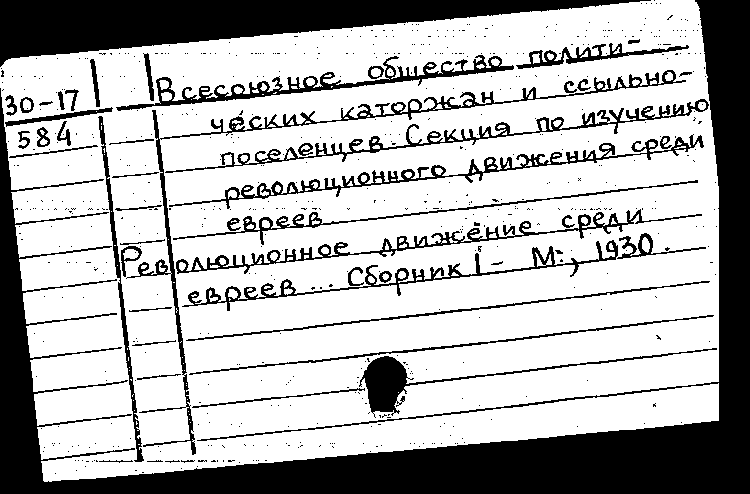 30-17
584
Всесоюзное общество полити-
ческих каторжан и ссыльно-
поселенцев. Секция по изучению
революционного движения среди
евреев
Революционное движение среди
евреев... Сборник I - М:, 1930.